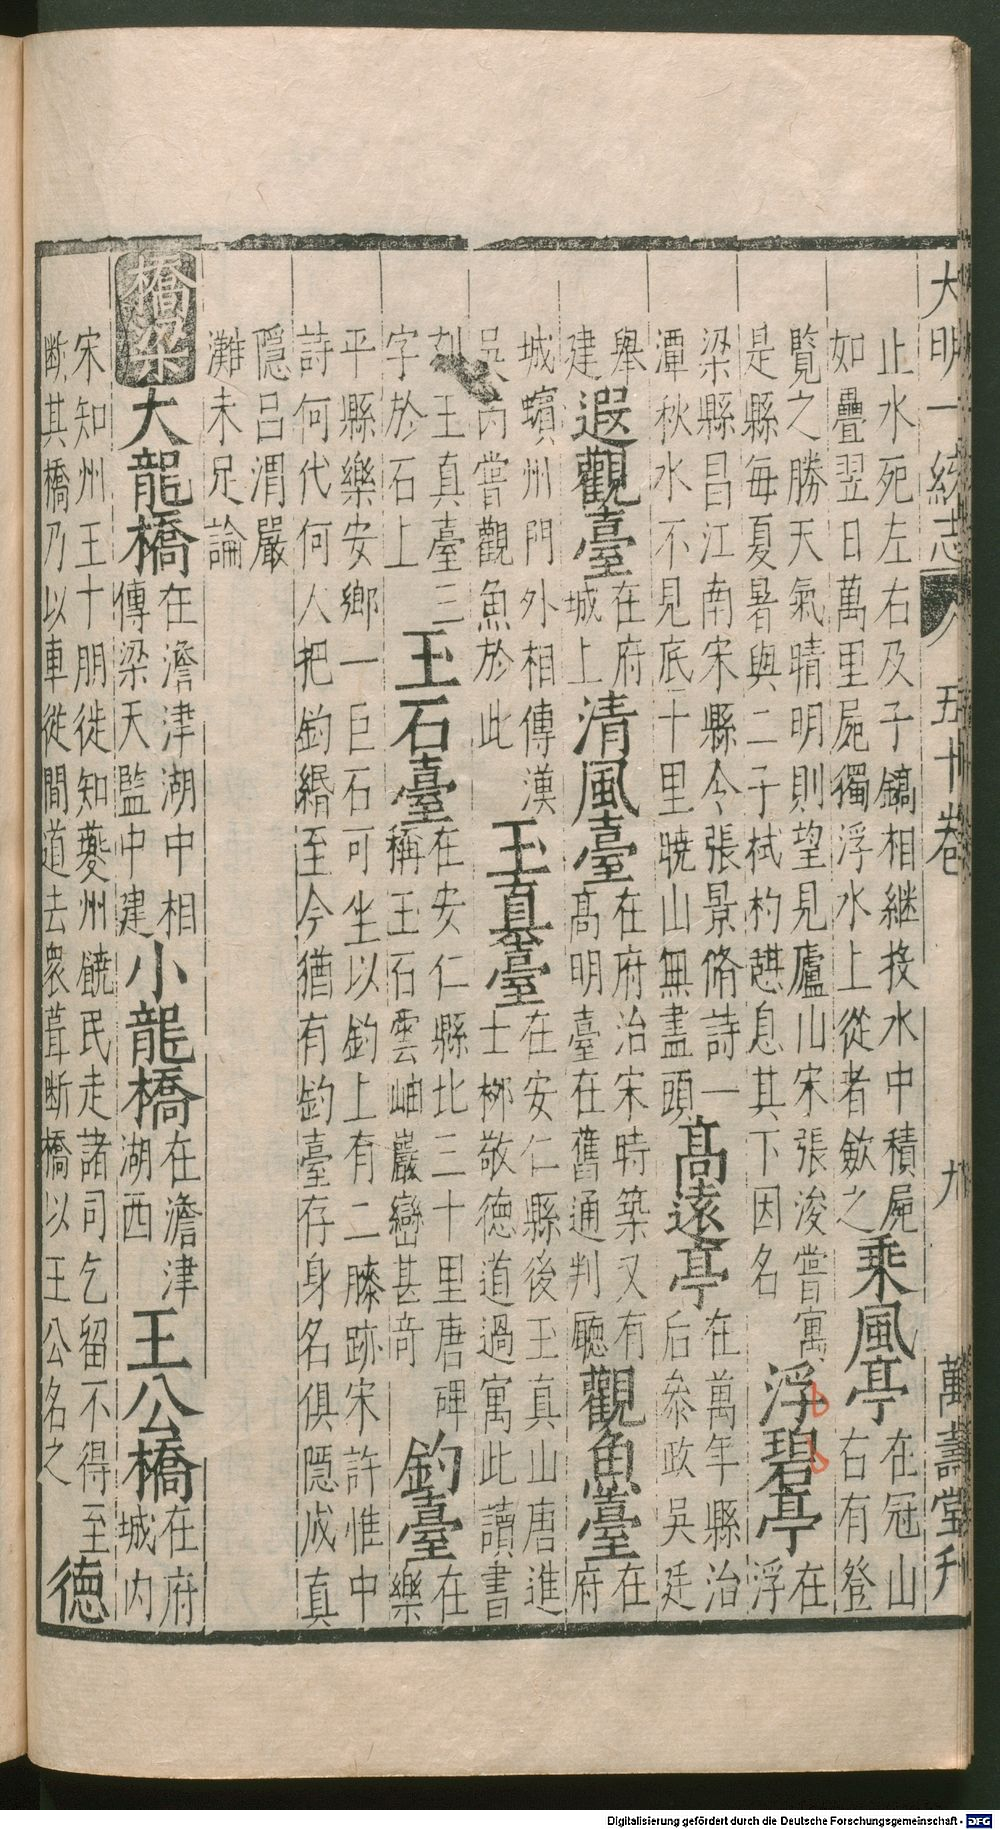 大明一統志 五十卷 九 萬壽堂刊
止水死左右及子鎬相継投水中積屍
如疊翌日萬里屍獨浮水上從者斂之
乗風亭
在冠山
右有登
覽之勝天氣晴明則望見廬山宋張浚嘗寓
是縣每夏暑與二子栻杓憇息其下因名
浮碧亭
在
浮
梁縣昌江南宋縣令張景脩詩一
潭秋水不見底十里暁山無盡頭
高遠亭
在萬年縣治
后叅政吳廷
舉
建
遐觀臺
在府
城上
清風臺
在府治宋時築又有
高明臺在舊通判廳
觀魚臺
在
府
城蠙州門外相傳漢
吳芮嘗觀魚於此
王真臺
在安仁縣後玉真山唐進
士栁敬德道過寓此讀書
刻王真臺三
字於石上
玉石臺
在安仁縣北二十里唐碑
稱玉石雲岫巖巒甚竒
釣臺
在
樂
平縣樂安鄉一巨石可坐以釣上有二膝跡宋許惟中
詩何代何人把釣緡至今猶有釣臺存身名俱隱成真
隱呂渭嚴
灘未足論
橋梁
大龍橋
在澹津湖中相
傳梁天監中建
小龍橋
在澹津
湖西
王公橋
在府
城内
宋知州王十朋徙知夔州饒民走諸司乞留不得至
断其橋乃以車從間道去衆葺断橋以王公名之
德
Digitalisierung gefördert durch die Deutsche Forschungsgemeinschaft - DFG